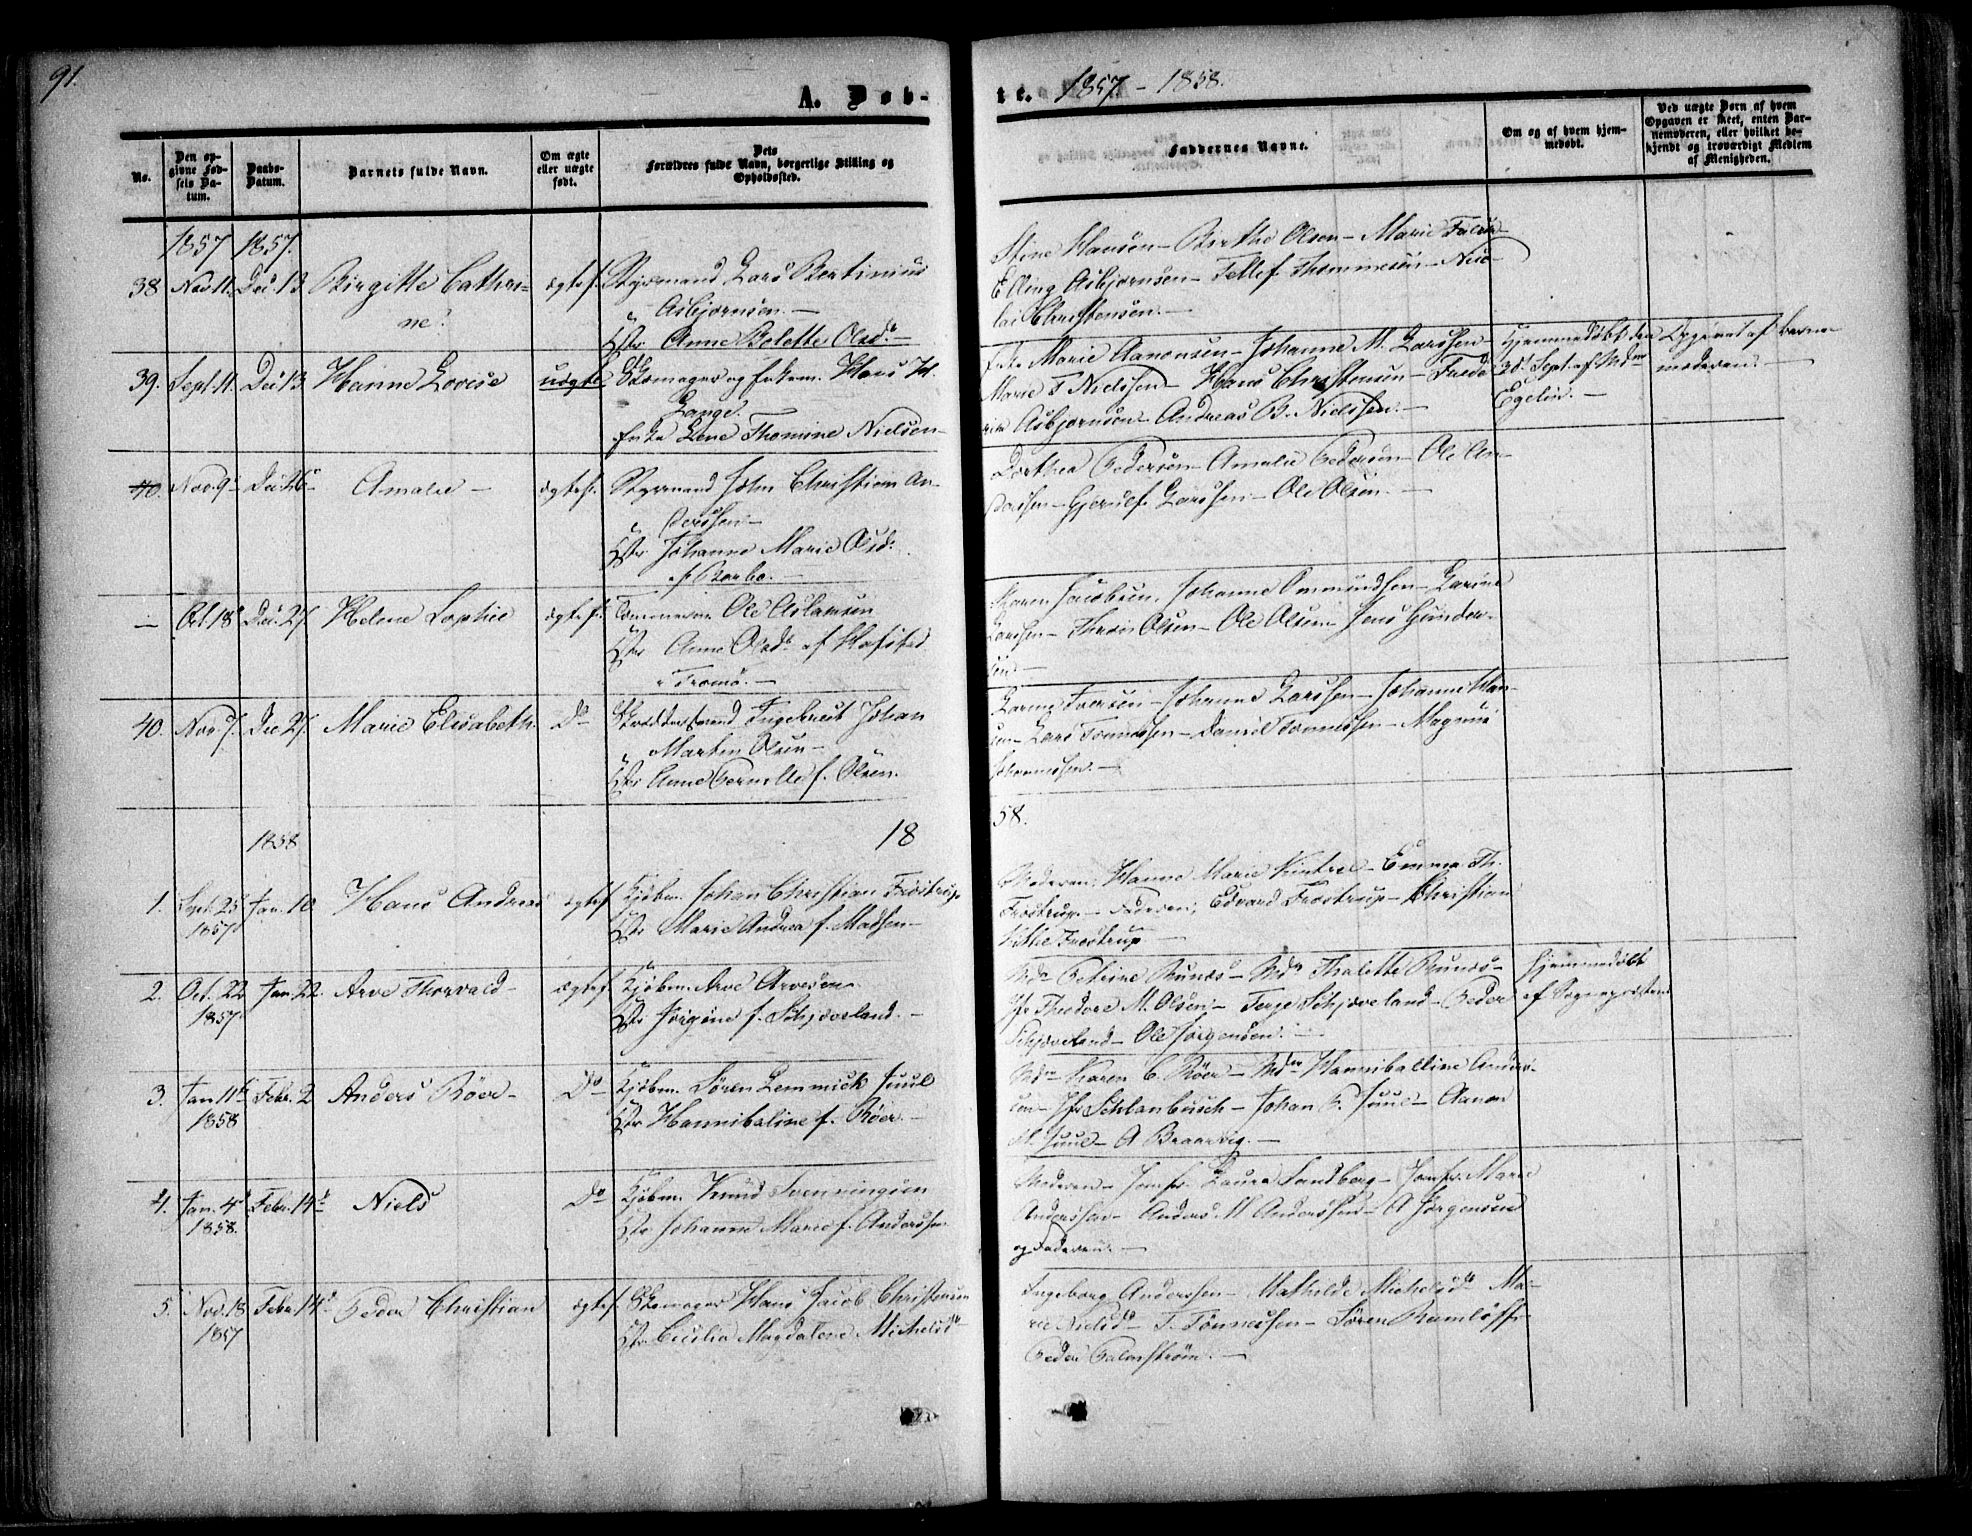 91.
A. Døb-
te. 1857 - 1858.
No.
Den op-
givne Fød-
sels Da-
tum.
Daabs-
Datum.
Barnets fulde Navn.
Om ægte
eller uægte
født.
Dets
Forældres fulde Navn, borgerlige Stilling og
Opholdssted.
Faddernes Navne.
Om og af hvem hjem-
medøbt.
Ved uægte Børn af hvem
Opgaven er skeet, enten Bar-
nemoderen, eller hvilket be-
kjendt og troværdigt Medlem
af Menigheden.
1857 1857.
38 Nov. 11. Dec. 13 Birgitte Cathri-
ne.
ægte f. Styrmand Lars Bertinius
Asbjørnsen. —
Anne Bolette Olsd. —
Hansen — Birthe Olsen — Marie
Elling Asbjørnsen — Tellef Thommesen — Nico-
lai Christensen. —
39. Sept. 11. Dec. 13 Hanne Lovise
uægte Skomager og Hans H.
Lange. —
Lene Thomine Nielsen —
Marie Aanonsen — Johanne M. Larssen
Marie T Nielssen — Hans Christensen —
Asbjørnsen — Andreas B. Nielssen. —
Hjemmedøbt den
30. Sept. af
Egelin. —
Opgivet af Barne-
moderen. —
40. Nov. 9 Dec. 26 Amalie —
ægte f. Styrmand John Christian An-
derssen —
Johanne Marie Olsd.
af Barbo. —
Dorthea Pedersen — Amalie Pedersen — Ole An-
derssen — Gjerulf Larssen — Ole Olsen. —
— Oct. 18 Dec. 27 Helene Sophie
ægte f. Ole Aslaksen
Anne Olsd. af Hofsted
Tromø. —
Karen Jacobsen, Johanne Ommundsen — Karine
Larssen — Olsen — Ole Olsen — Jens Gunder-
sen. —
40. Nov. 7. Dec. 27. Marie Elisabeth.
Do Ingebret Johan
Martin Olsen —
Anne Pernille f. Olsen.
Karine Iversen — Johanne Larssen — Johanne Han-
sen — Lars Tønnessen — Daniel Tønnessen — Magnus
Johannessen. —
1858
18
58.
1. Sept. 25 Jan. 10 Hans Andreas
1857
ægte f. Kjøbm. Johan Christian Frøstrup
Marie Andrea f. Madsen —
Moderen, Hanne Marie — Emma Th.
Frøstrup — Faderen, Edvard Frøstrup — Christian
Frøstrup —
2. Oct. 22 Jan. 22. Arve Thorvald —
1857.
ægte f. Kjøbm. Arve Arvesen
Jørgine f. Schjæveland. —
Md. Petrine — Md. Thalette
Jfr Theodore M. Olsen — Terje Schjæveland — Peder
Schjæveland — Ole Jørgensen. —
Hjemmedøbt
af Sognepresten
3. Jan. 11 Febr. 2 Anders Röer —
1858
Do Kjøbm. Søren Lemmick Juul
Hannibaline f. Röer —
Karen C. Röer — Hannibaline Anders-
sen — Jfr Schlanbusch — Johan C. Juul — Aanon
Juul — A Braarvig. —
4. Jan. 4 Febr. 14 Niels
1858.
Do Kjøbm. Knud Svenningsen
Johanne Marie f. Anderssen
Moderen — Jomfr. Laura Sandberg — Jomfr. Marie
Anderssen — Anders M Anderssen — A Jørgensen
og Faderen. —
5. Nov. 18 Febr. 14 Peder Christian
1857
ægte f. Skomager Hans Jacob Christensen
Cecilia Magdalene Michelsd.
Ingeborg Anderssen — Mathilde Michelsd. Ma-
rie Nielsd — T. Tönnessen — Søren Rumleff
Peder Palmstrøm. —